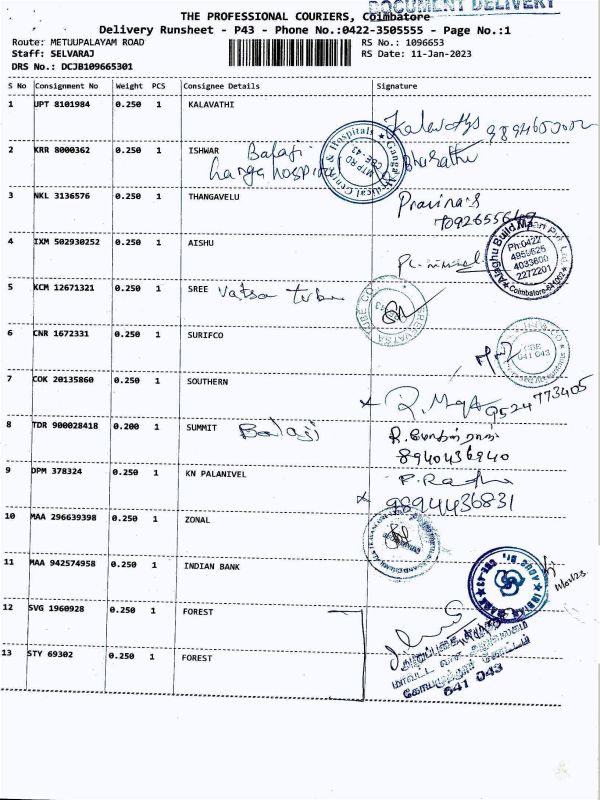 DOCUMENT DELIVERY
THE PROFESSIONAL COURIERS, Coimbatore
Delivery Runsheet - P43 - Phone No.:0422-3505555 - Page No.:1
Route: METUUPALAYAM ROAD RS No.: 1096653
Staff: SELVARAJ RS Date: 11-Jan-2023
DRS No.: DCJB109665301
S No Consignment No Weight PCS Consignee Details Signature
1 UPT 8101984 0.250 1 KALAVATHI
2 KRR 8000362 0.250 1 ISHWAR Balaji
Ganga hospital
Ganga Medical Centre & Hospitals
MTP RD
CBE-43
3 NKL 3136576 0.250 1 THANGAVELU
4 IXM 502930252 0.250 1 AISHU
Ph:0422
4033600
2272201
Coimbatore
5 KCM 12671321 0.250 1 SREE Vatsa tube
6 CNR 1672331 0.250 1 SURIFCO
CBE
641 043
7 COK 20135860 0.250 1 SOUTHERN
9524773405
8 TDR 900028418 0.200 1 SUMMIT Balaji
8940436940
9 DPM 378324 0.250 1 KN PALANIVEL
9894436831
10 MAA 296639398 0.250 1 ZONAL
11 MAA 942574958 0.250 1 INDIAN BANK
12 SVG 1960928 0.250 1 FOREST
13 STY 69302 0.250 1 FOREST
மாவட்ட வன அலுவலகம்
641 043